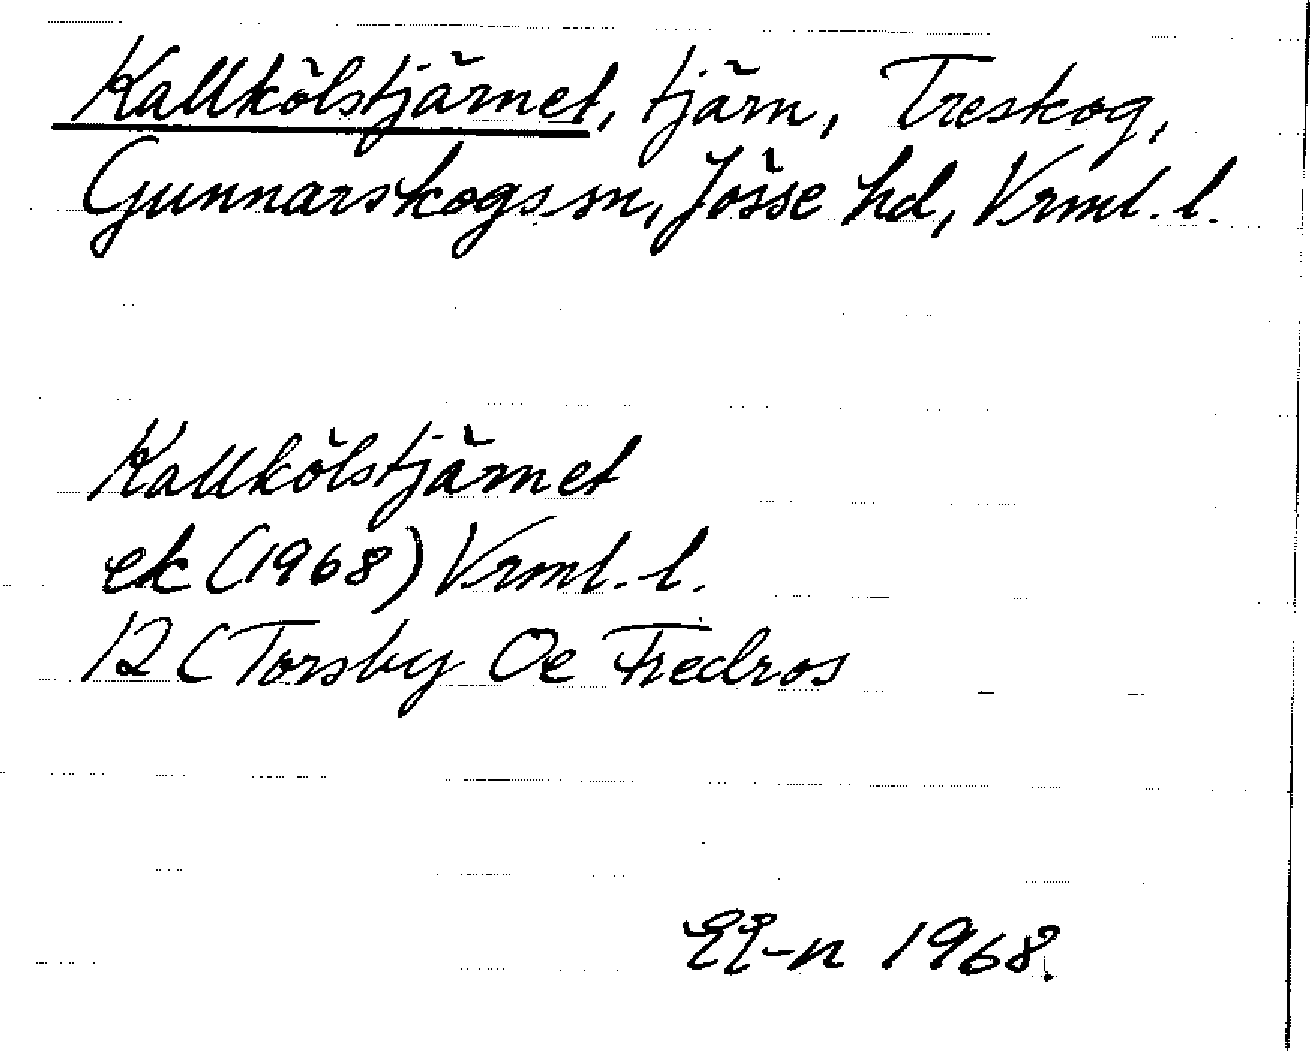 Kallkölstjärnet, tjärn, Treskog,
Gunnarskogs sn, Jösse hd, Vrml. l.
Kallkölstjärnet
ek (1968) Vrml. l.
12 C Torsby Oe Fredros
EE-n 1968.